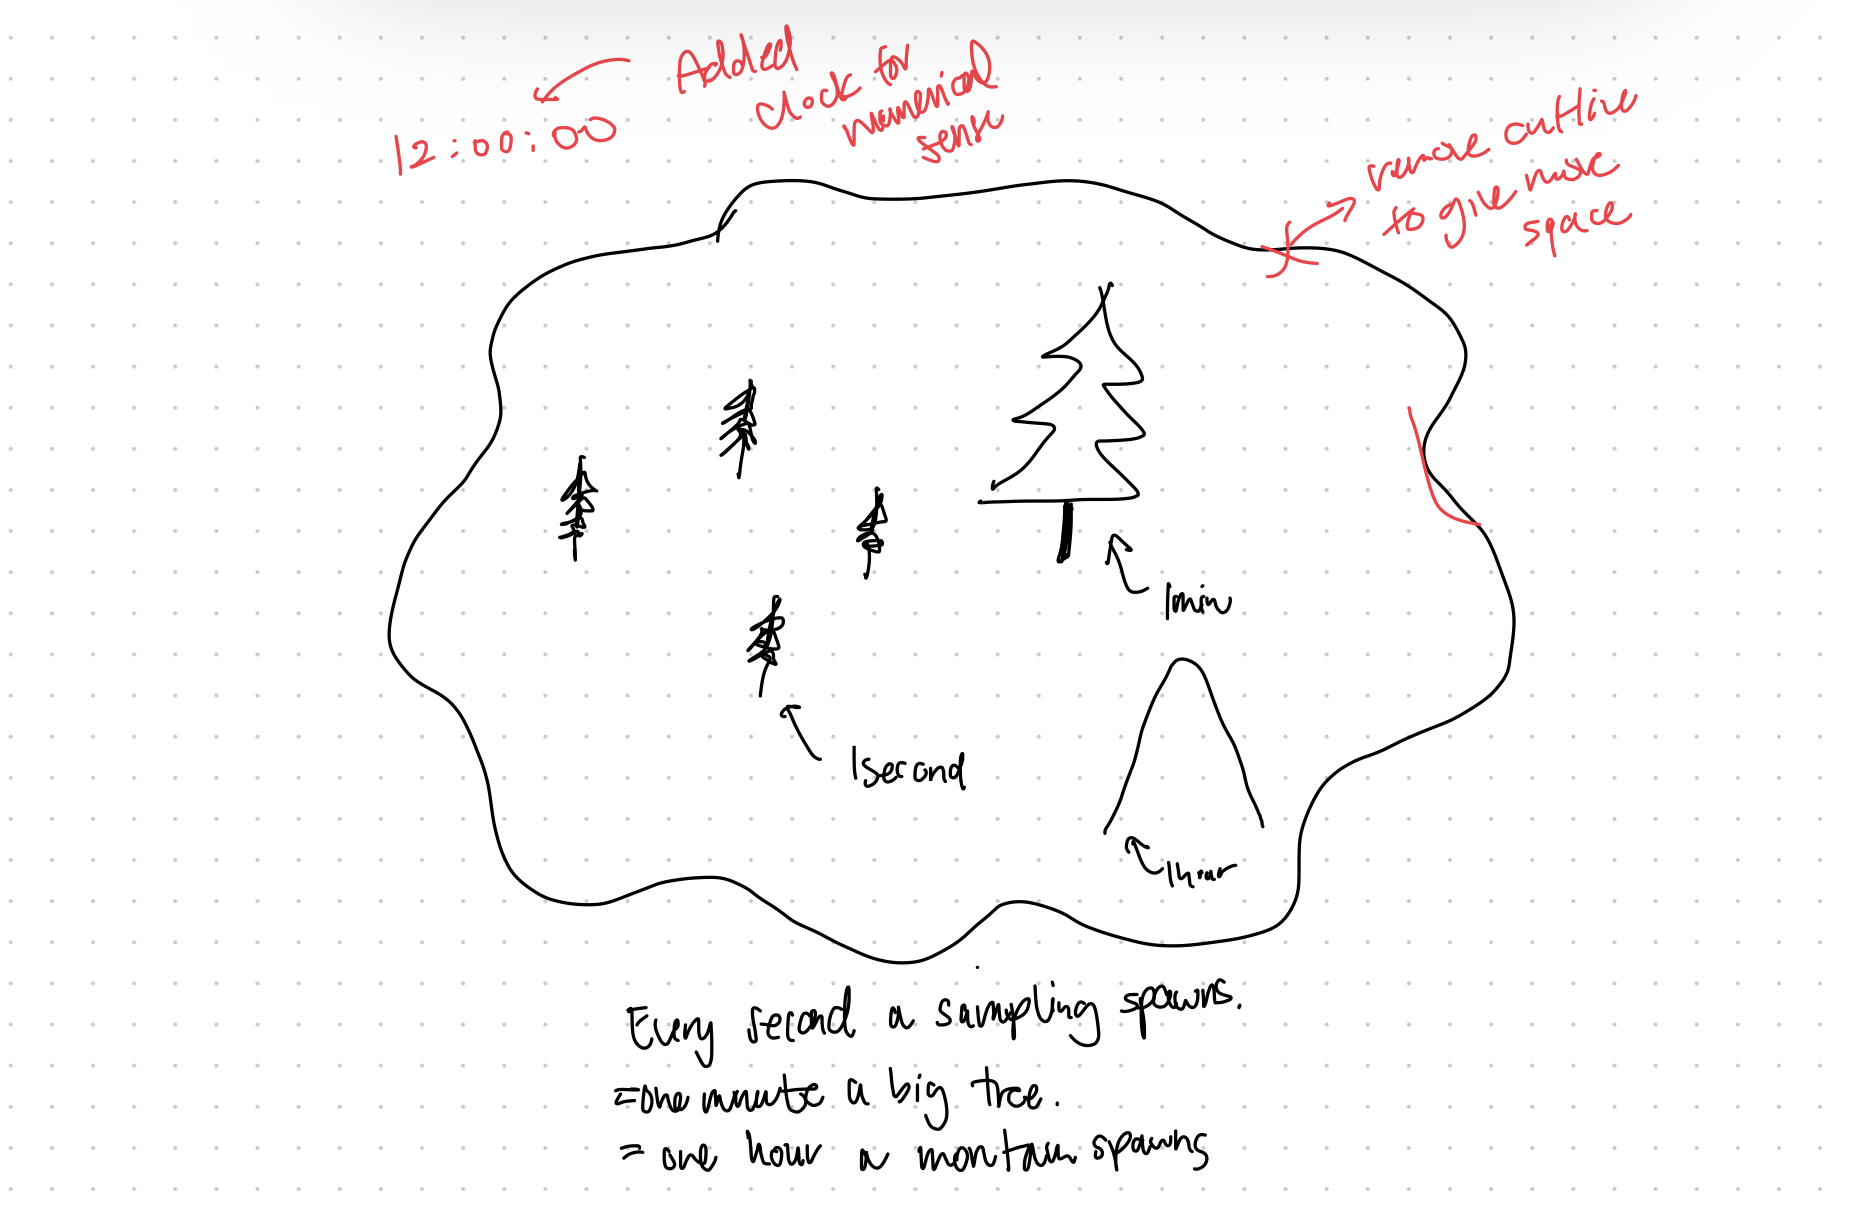 Added
clock for
numerical
sense
12:00:00
remove outline
to give more
space
1min
1second
1hour
Every second a sampling spawns.
=one minute a big tree.
= one hour a montain spawns